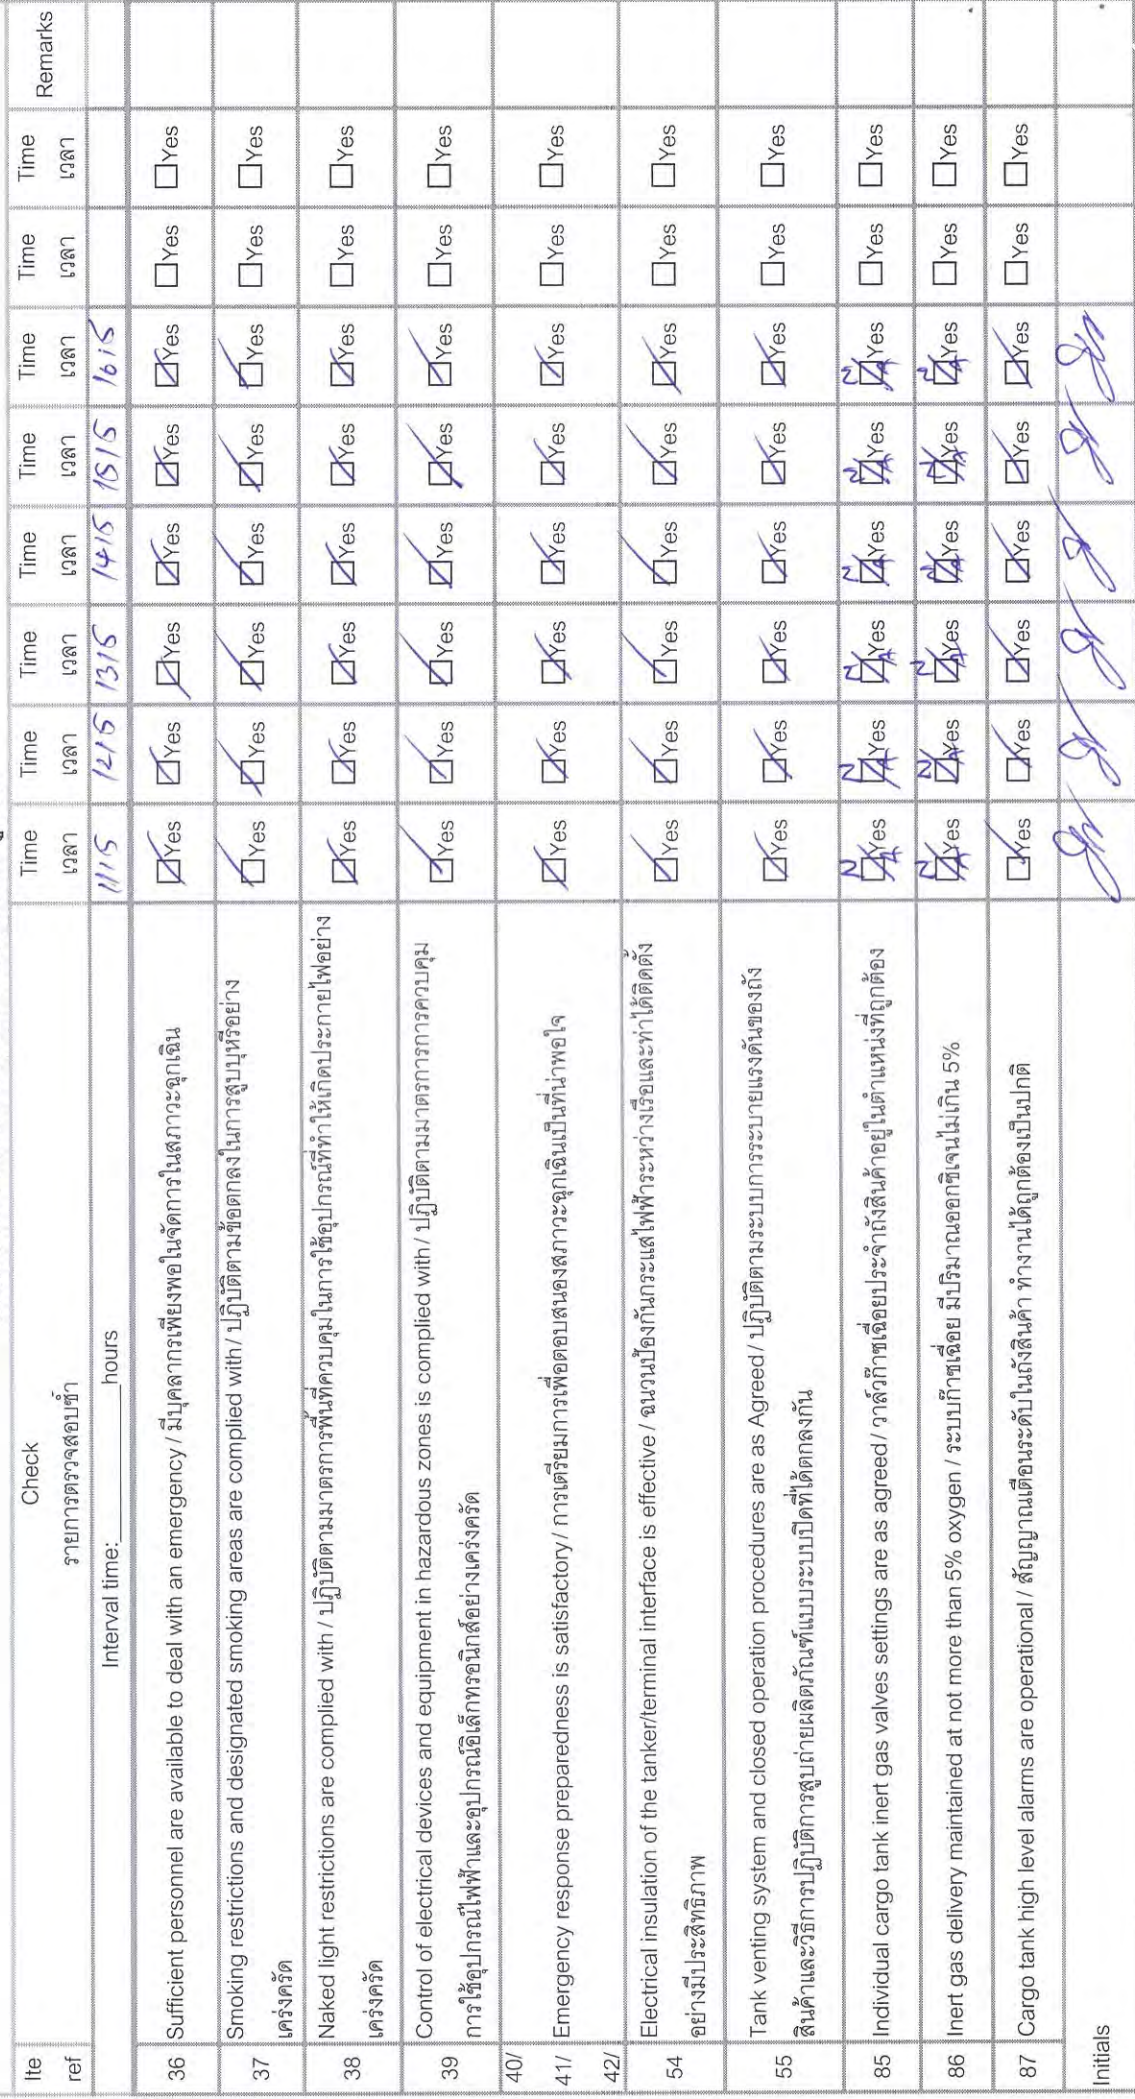 Ite ref
Check
รายการตรวจสอบซ้ำ
Time เวลา
Time เวลา
Time เวลา
Time เวลา
Time เวลา
Time เวลา
Time เวลา
Time เวลา
Remarks
Interval time:________________hours
1115 1215 1315 1415 1515 1615
36 Sufficient personnel are available to deal with an emergency / มีบุคลากรเพียงพอในจัดการในสภาวะฉุกเฉิน
☑Yes ☑Yes ☑Yes ☑Yes ☑Yes ☑Yes ☐Yes ☐Yes
37 Smoking restrictions and designated smoking areas are complied with/ ปฏิบัติตามข้อตกลงในการสูบบุหรี่อย่าง
เคร่งครัด
☑Yes ☑Yes ☑Yes ☑Yes ☑Yes ☑Yes ☐Yes ☐Yes
38 Naked light restrictions are complied with / ปฏิบัติตามมาตรการพื้นที่ควบคุมในการใช้อุปกรณ์ที่ทำให้เกิดประกายไฟอย่าง
เคร่งครัด
☑Yes ☑Yes ☑Yes ☑Yes ☑Yes ☑Yes ☐Yes ☐Yes
39 Control of electrical devices and equipment in hazardous zones is complied with/ ปฏิบัติตามมาตรการการควบคุม
การใช้อุปกรณ์ไฟฟ้าและอุปกรณ์อิเล็กทรอนิกส์อย่างเคร่งครัด
☑Yes ☑Yes ☑Yes ☑Yes ☑Yes ☑Yes ☐Yes ☐Yes
40/
41/ Emergency response preparedness is satisfactory / การเตรียมการเพื่อตอบสนองสภาวะฉุกเฉินเป็นที่น่าพอใจ
42/
☑Yes ☑Yes ☑Yes ☑Yes ☑Yes ☑Yes ☐Yes ☐Yes
54 Electrical insulation of the tanker/terminal interface is effective / ฉนวนป้องกันกระแสไฟฟ้าระหว่างเรือและท่าได้ติดตั้ง
อย่างมีประสิทธิภาพ
☑Yes ☑Yes ☑Yes ☑Yes ☑Yes ☑Yes ☐Yes ☐Yes
55 Tank venting system and closed operation procedures are as Agreed / ปฏิบัติตามระบบการระบายแรงดันของถัง
สินค้าและวิธีการปฏิบัติการสูบถ่ายผลิตภัณฑ์แบบระบบปิดที่ได้ตกลงกัน
☑Yes ☑Yes ☑Yes ☑Yes ☑Yes ☑Yes ☐Yes ☐Yes
85 Individual cargo tank inert gas valves settings are as agreed / วาล์วก๊าซเฉื่อยประจำถังสินค้าอยู่ในตำแหน่งที่ถูกต้อง
N/A Yes N/A Yes N/A Yes N/A Yes N/A Yes N/A Yes ☐Yes ☐Yes
86 Inert gas delivery maintained at not more than 5% oxygen / ระบบก๊าซเฉื่อย มีปริมาณออกซิเจนไม่เกิน 5%
N/A Yes N/A Yes N/A Yes N/A Yes N/A Yes N/A Yes ☐Yes ☐Yes
87 Cargo tank high level alarms are operational / สัญญาณเตือนระดับในถังสินค้า ทำงานได้ถูกต้องเป็นปกติ
☑Yes ☑Yes ☑Yes ☑Yes ☑Yes ☑Yes ☐Yes ☐Yes
Initials